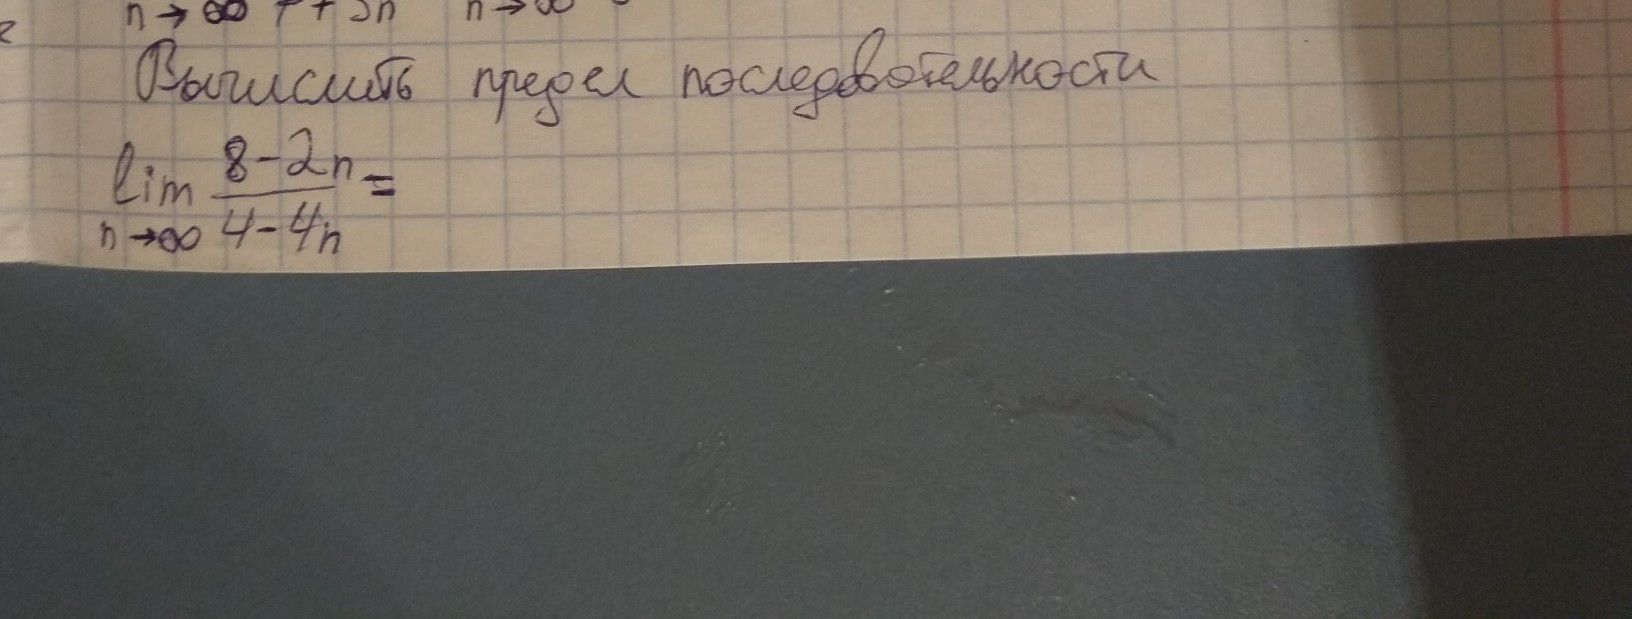 n→∞ + 3n n→∞
Вычислить предел последовательности
lim 8-2n / 4-4n =
n→∞